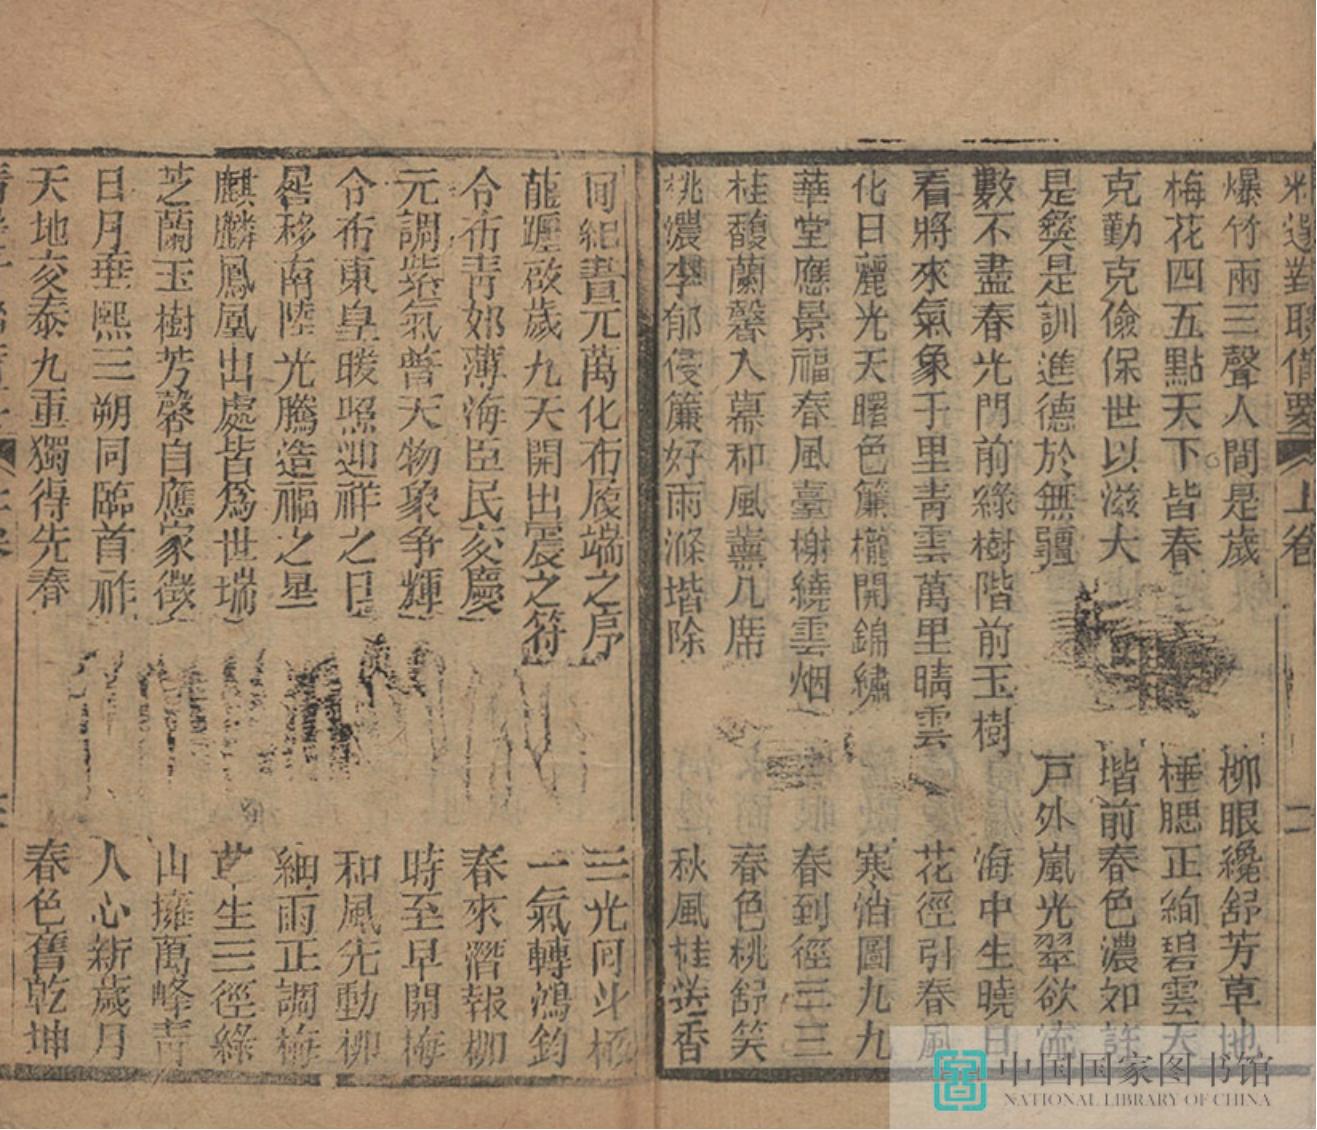 對聯備要 上卷 二
爆竹兩三聲人間是歲 柳眼纔舒芳草地
梅花四五點天下皆春 桃腮正絢碧雲天
克勤克儉保世以滋大 堦前春色濃如許
是彝是訓進德於無疆 戸外嵐光翠欲流
數不盡春光門前綠樹階前玉樹 海中生曉日
看將來氣象千里青雲萬里晴雲 花徑引春風
化日麗光天曙色簾櫳開錦繡 寒怕圖九九
華堂應景福春風臺榭繞雲烟 春到徑三三
桂馥蘭馨入幕和風薰几席 春色桃舒笑
桃濃李郁侵簾好雨滌堦除 秋風桂送香
同紀晝元萬化布履端之序 三光同斗極
龍躔啟歲九天開出震之符 一氣轉鴻鈞
令布青郊薄海臣民交慶 春來潛報柳
元調紫氣普天物象争輝 時至早開梅
令布東皇暖照迎祥之日 和風先動柳
晷移南陸光騰造福之星 細雨正調梅
麒麟鳳凰出處皆爲世瑞 芝生三徑綠
芝蘭玉樹芳馨自應家徵 山擁萬峰青
日月垂熙三朔同臨首祚 人心新歲月
天地交泰九重獨得先春 春色舊乾坤
中国国家图书馆
NATIONAL LIBRARY OF CHINA